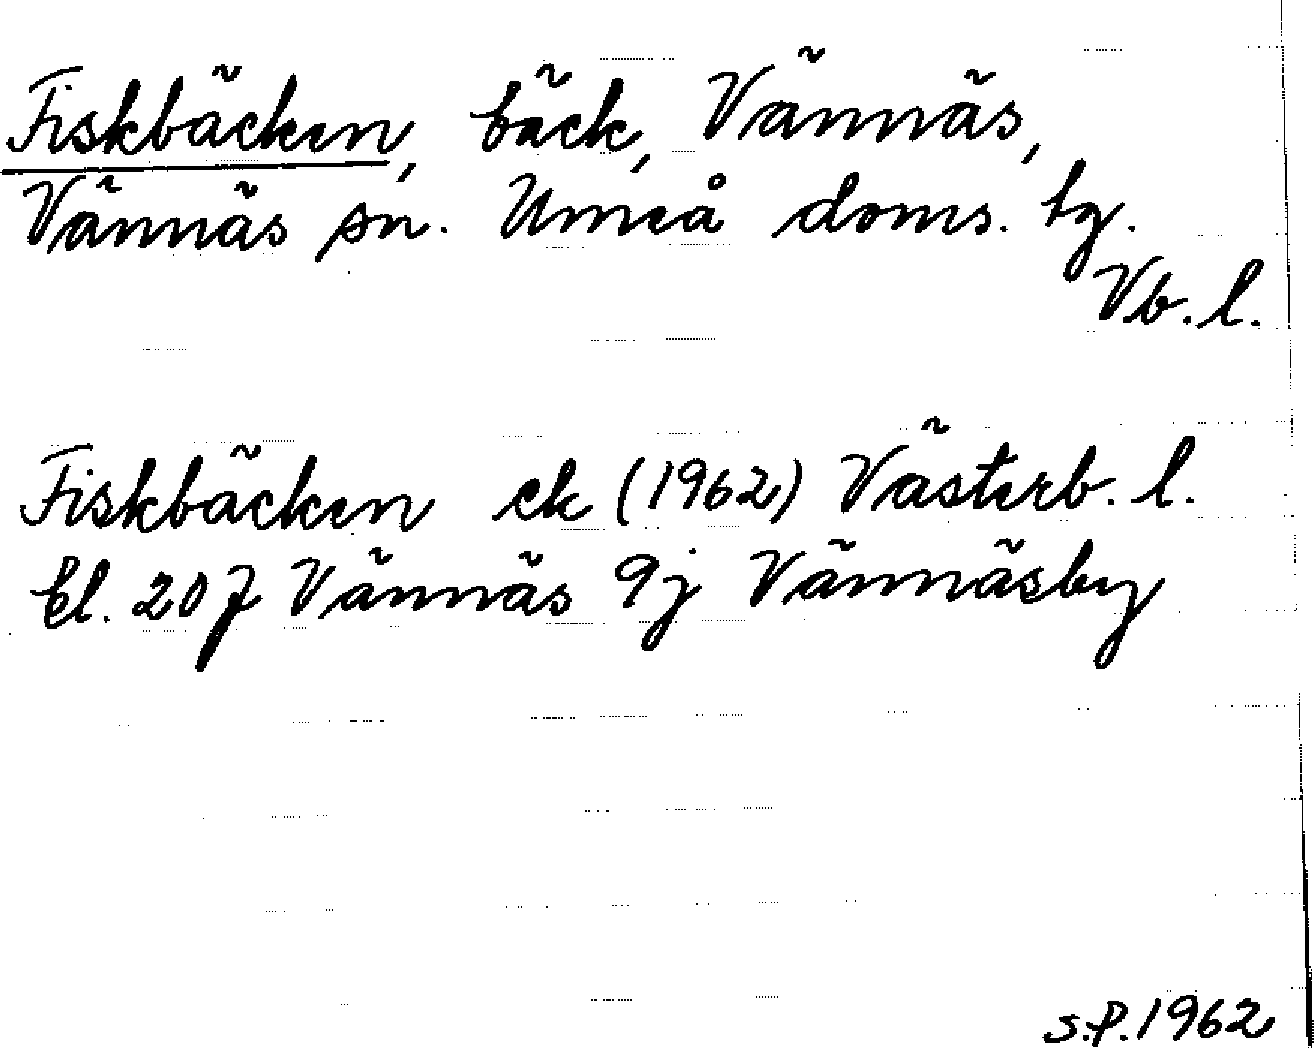 Fiskbäcken, bäck, Vännäs,
Vännäs sn. Umeå doms. tg.
Vb. l.
Fiskbäcken ek (1962) Västerb. l.
bl. 207 Vännäs 9j Vännäsby
S.P. 1962